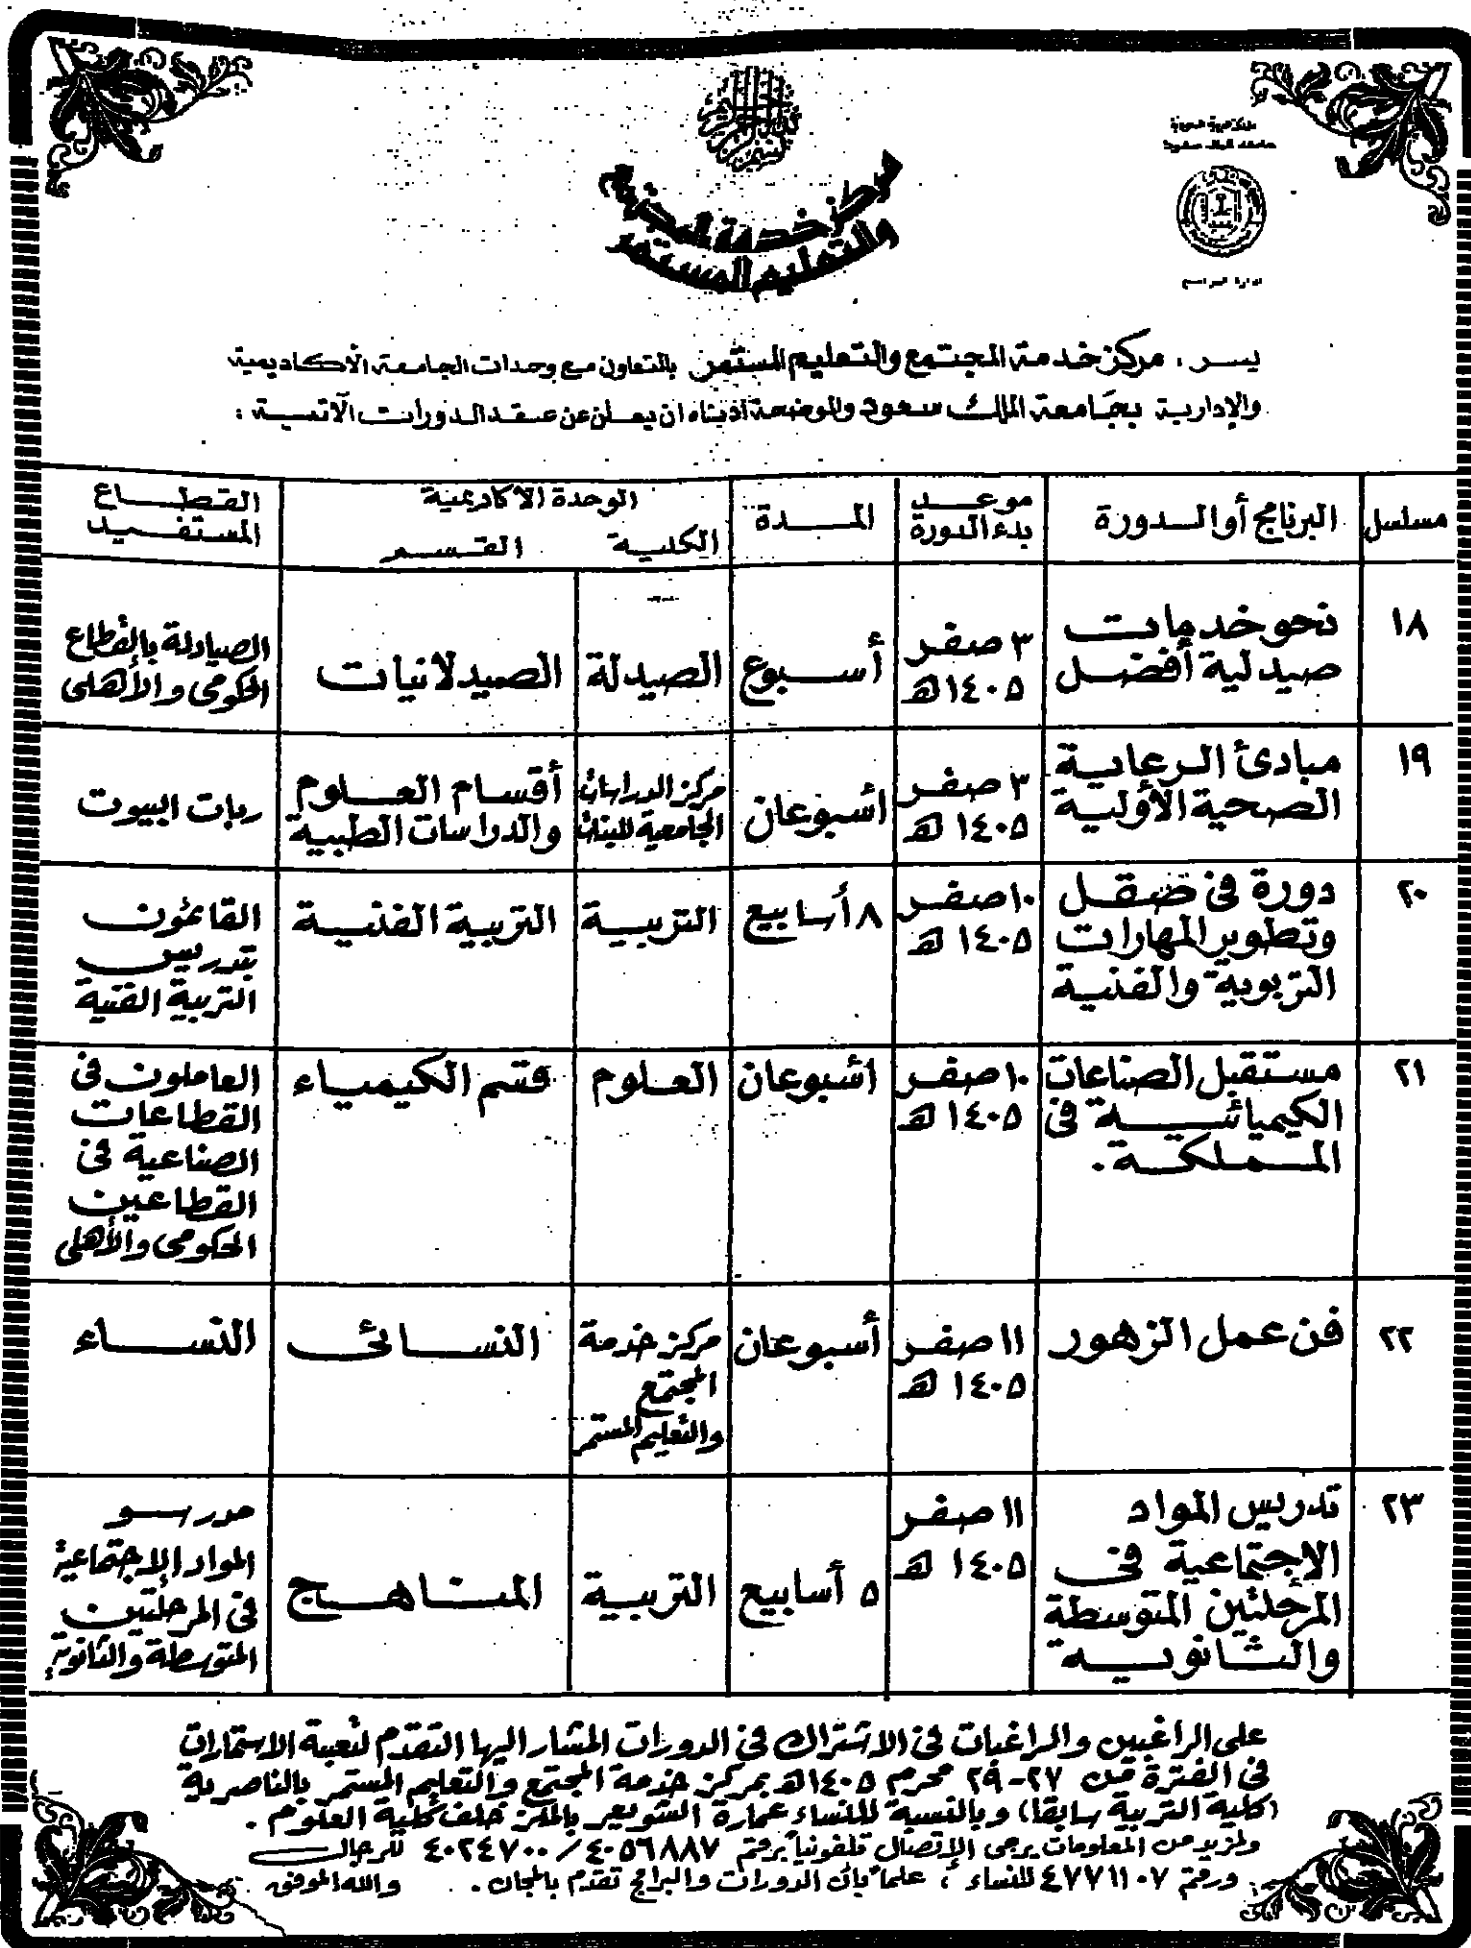 المملكة العربية السعودية
جامعة الملك سعود
مركز خدمة المجتمع
والتعليم المستمر
يسر، مركز خدمة المجتمع والتعليم المستمر بالتعاون مع وحدات الجامعة الأكاديمية
والإدارية بجامعة الملك سعود والموضحة أدناه ان يعلن عن عقد الدورات الآتية :
مسلسل
البرنامج أو الدورة
موعد
بدء الدورة
المدة
الوحدة الاكاديمية
الكلية
القسم
القطاع
المستفيد
١٨
نحو خدمات
صيدلية أفضل
٣ صفر
١٤٠٥ هـ
أسبوع
الصيدلة
الصيدلانيات
الصيادلة بالقطاع
الحكومى والأهلى
١٩
مبادئ الرعاية
الصحية الأولية
٣ صفر
١٤٠٥ هـ
أسبوعان
مركز الدراسات
الجامعية للبنات
أقسام العلوم
والدراسات الطبية
ربات البيوت
٢٠
دورة فى صقل
وتطوير المهارات
التربوية والفنية
١٠ صفر
١٤٠٥ هـ
٨ أسابيع
التربية
التربية الفنية
القائمون
بتدريس
التربية الفنية
٢١
مستقبل الصناعات
الكيميائية فى
المملكة .
١٠ صفر
١٤٠٥ هـ
أسبوعان
العلوم
قسم الكيمياء
العاملون فى
القطاعات
الصناعية فى
القطاعين
الحكومى والأهلى
٢٢
فن عمل الزهور
١١ صفر
١٤٠٥ هـ
أسبوعان
مركز خدمة
المجتمع
والتعليم المستمر
النسائى
النساء
٢٣
تدريس المواد
الاجتماعية فى
المرحلتين المتوسطة
والثانوية
١١ صفر
١٤٠٥ هـ
٥ أسابيع
التربية
المناهج
مدرسو
المواد الاجتماعية
فى المرحلتين
المتوسطة والثانوية
على الراغبين والراغبات فى الاشتراك فى الدورات المشار اليها التقدم لتعبئة الاستمارات
فى الفترة من ٢٧-٢٩ محرم ١٤٠٥هـ بمركز خدمة المجتمع والتعليم المستمر بالناصرية
(كلية التربية سابقا) وبالنسبة للنساء عمارة الشويعر بالملز خلف كلية العلوم .
ولمزيد من المعلومات يرجى الاتصال تلفونياً برقم ٤٠٥٦٨٨٧ / ٤٠٢٤٧٠٠ للرجال
ورقم ٤٧٧١١٠٧ للنساء ، علماً بأن الدورات والبرامج تقدم بالمجان . والله الموفق